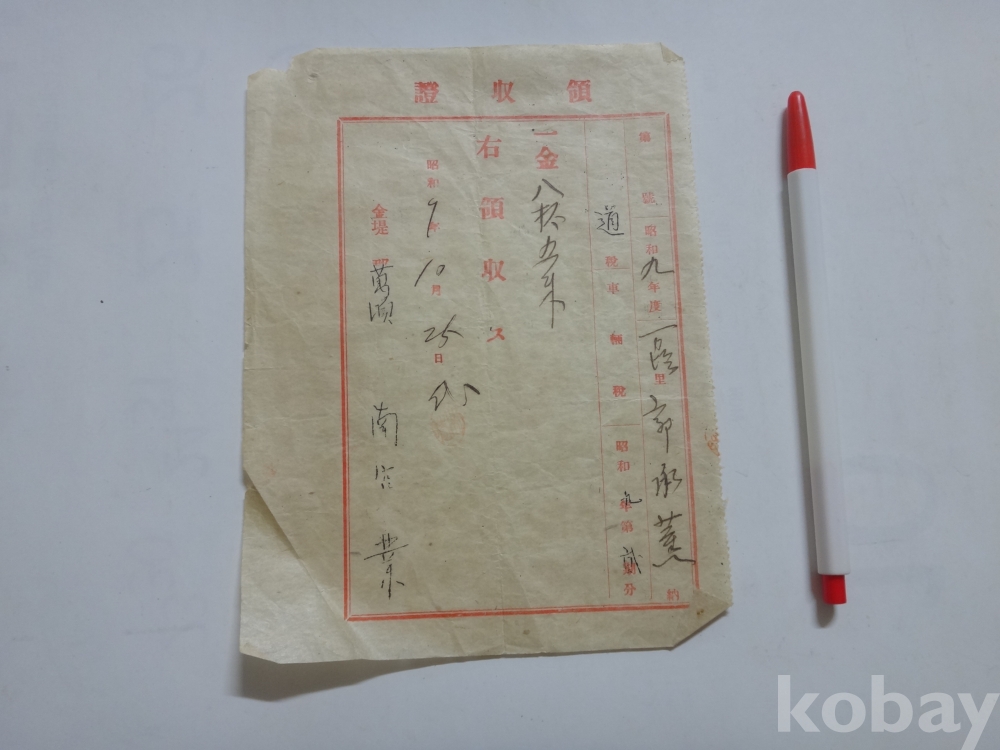 領收證
第 號 昭和九年度 里 郭承薰 納
道稅車輛稅 昭和九年第貳期分
一金八拾五錢
右領收ス
昭和9年10月25日
金堤郡萬頃 南宮
kobay